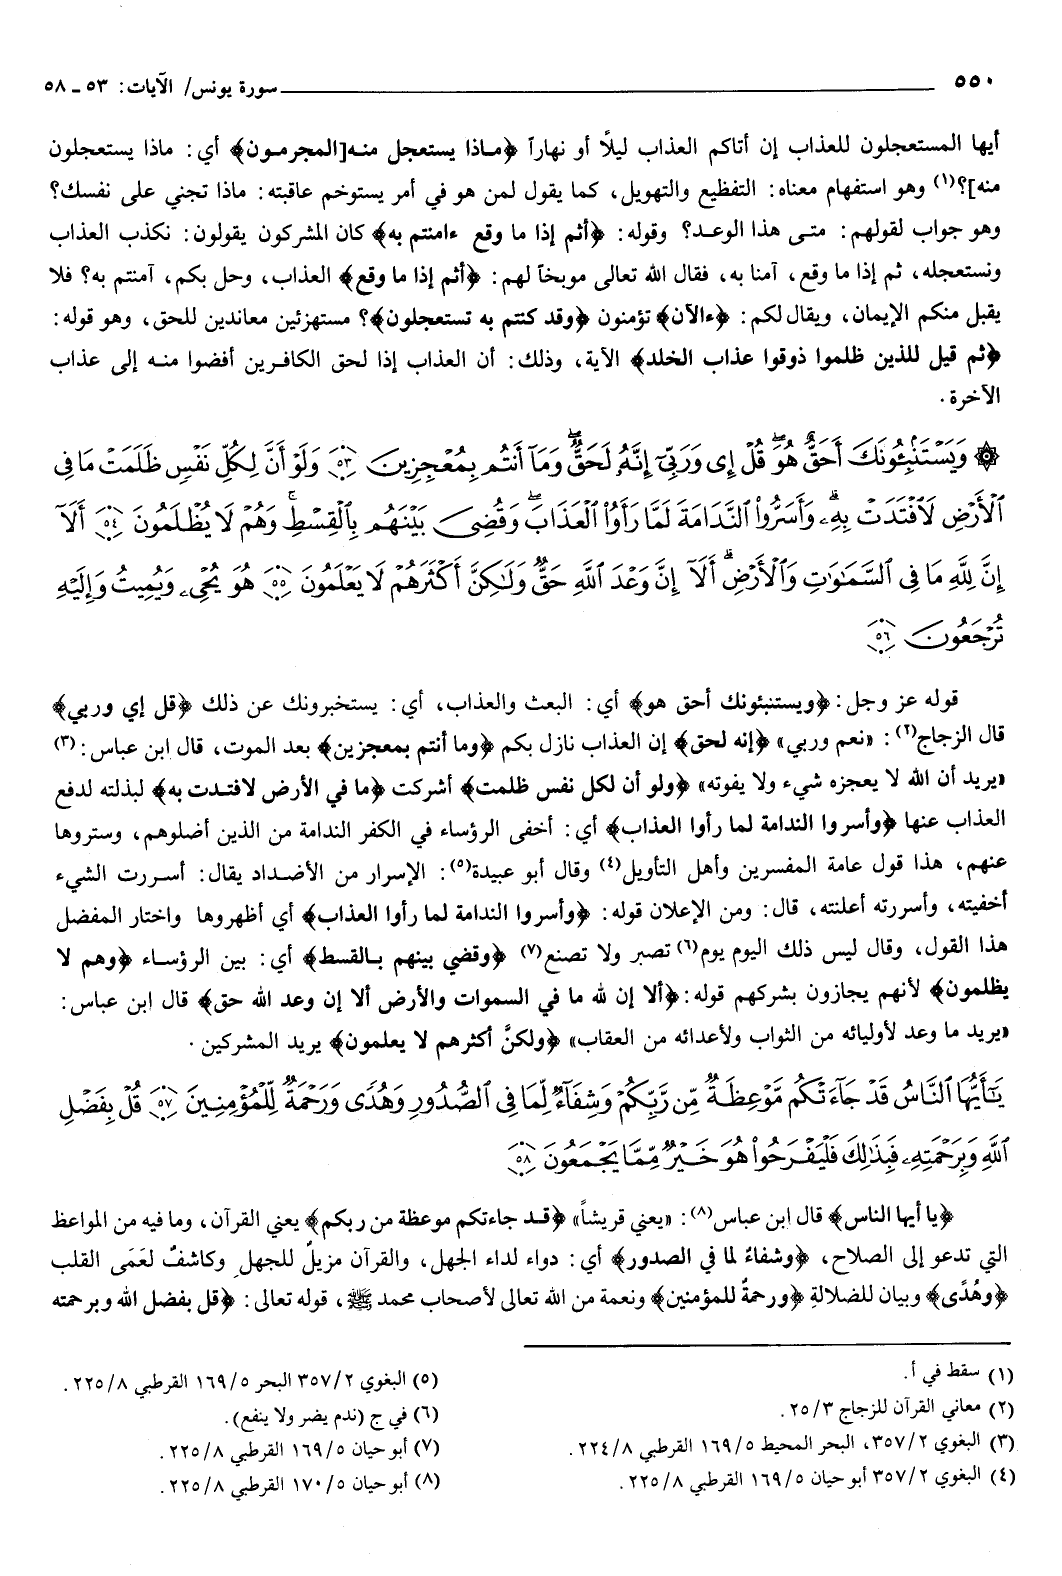 ٥٥٠ سورة يونس/ الآيات: ٥٣ ـ ٥٨
أيها المستعجلون للعذاب إن أتاكم العذاب ليلًا أو نهاراً ﴿مـاذا يستعجل منـه[المجرمـون﴾ أي: ماذا يستعجلون
منه]؟(١) وهو استفهام معناه: التفظيع والتهويل، كما يقول لمن هو في أمر يستوخم عاقبته: ماذا تجني على نفسك؟
وهو جواب لقولهم: متـى هذا الوعـد؟ وقوله: ﴿أثم إذا ما وقع ءامنتم به﴾ كان المشركون يقولون: نكذب العذاب
ونستعجله، ثم إذا ما وقع، آمنا به، فقال الله تعالى موبخاً لهم: ﴿أثم إذا ما وقع﴾ العذاب، وحل بكم، آمنتم به؟ فلا
يقبل منكم الإيمان، ويقال لكم: ﴿ءالآن﴾ تؤمنون ﴿وقد كنتم به تستعجلون﴾؟ مستهزئين معاندين للحق، وهو قوله:
﴿ثم قيل للذين ظلموا ذوقوا عذاب الخلد﴾ الآية، وذلك: أن العذاب إذا لحق الكافرين أفضوا منـه إلى عذاب
الآخرة.
۞ وَيَسْتَنۢبِـُٔونَكَ أَحَقٌّ هُوَ ۖ قُلْ إِى وَرَبِّىٓ إِنَّهُۥ لَحَقٌّ ۖ وَمَآ أَنتُم بِمُعْجِزِينَ ٥٣ وَلَوْ أَنَّ لِكُلِّ نَفْسٍ ظَلَمَتْ مَا فِى
ٱلْأَرْضِ لَٱفْتَدَتْ بِهِۦ ۗ وَأَسَرُّوا۟ ٱلنَّدَامَةَ لَمَّا رَأَوُا۟ ٱلْعَذَابَ ۖ وَقُضِىَ بَيْنَهُم بِٱلْقِسْطِ ۚ وَهُمْ لَا يُظْلَمُونَ ٥٤ أَلَآ
إِنَّ لِلَّهِ مَا فِى ٱلسَّمَٰوَٰتِ وَٱلْأَرْضِ ۗ أَلَآ إِنَّ وَعْدَ ٱللَّهِ حَقٌّ وَلَٰكِنَّ أَكْثَرَهُمْ لَا يَعْلَمُونَ ٥٥ هُوَ يُحْىِۦ وَيُمِيتُ وَإِلَيْهِ
تُرْجَعُونَ ٥٦
قوله عز وجل: ﴿ويستنبئونك أحق هو﴾ أي: البعث والعذاب، أي: يستخبرونك عن ذلك ﴿قل إي وربي﴾
قال الزجاج(٢): «نعم وربي» ﴿إنه لحق﴾ إن العذاب نازل بكم ﴿وما أنتم بمعجزين﴾ بعد الموت، قال ابن عباس:(٣)
«يريد أن الله لا يعجزه شيء ولا يفوته» ﴿ولو أن لكل نفس ظلمت﴾ أشركت ﴿ما في الأرض لافتـدت به﴾ لبذلته لدفع
العذاب عنها ﴿وأسروا الندامة لما رأوا العذاب﴾ أي: أخفى الرؤساء في الكفر الندامة من الذين أضلوهم، وستروها
عنهم، هذا قول عامة المفسرين وأهل التأويل(٤) وقال أبو عبيدة(٥): الإسرار من الأضـداد يقال: أسـررت الشيء
أخفيته، وأسررته أعلنته، قال: ومن الإعلان قوله: ﴿وأسروا الندامة لما رأوا العذاب﴾ أي أظهروها واختار المفضل
هذا القول، وقال ليس ذلك اليوم يوم(٦) تصبر ولا تصنع(٧) ﴿وقضي بينهم بـالقسط﴾ أي: بين الرؤسـاء ﴿وهم لا
يظلمون﴾ لأنهم يجازون بشركهم قوله: ﴿ألا إن لله ما في السموات والأرض ألا إن وعد الله حق﴾ قال ابن عباس:
«يريد ما وعد لأوليائه من الثواب ولأعدائه من العقاب» ﴿ولكنَّ أكثرهم لا يعلمون﴾ يريد المشركين.
يَٰٓأَيُّهَا ٱلنَّاسُ قَدْ جَآءَتْكُم مَّوْعِظَةٌ مِّن رَّبِّكُمْ وَشِفَآءٌ لِّمَا فِى ٱلصُّدُورِ وَهُدًى وَرَحْمَةٌ لِّلْمُؤْمِنِينَ ٥٧ قُلْ بِفَضْلِ
ٱللَّهِ وَبِرَحْمَتِهِۦ فَبِذَٰلِكَ فَلْيَفْرَحُوا۟ هُوَ خَيْرٌ مِّمَّا يَجْمَعُونَ ٥٨
﴿يا أيها الناس﴾ قال ابن عباس(٨): «يعني قريشاً» ﴿قـد جاءتكم موعظة من ربكم﴾ يعني القرآن، وما فيه من المواعظ
التي تدعو إلى الصلاح، ﴿وشفاءً لما في الصدور﴾ أي: دواء لداء الجهل، والقرآن مزيلٌ للجهل وكاشفٌ لعَمَى القلب
﴿وهُدًى﴾ وبيان للضلالةِ ﴿ورحمةً للمؤمنين﴾ ونعمة من الله تعالى لأصحاب محمد ﷺ، قوله تعالى: ﴿قل بفضل الله وبرحمته
(١) سقط في أ.
(٢) معاني القرآن للزجاج ٢٥/٣.
(٣) البغوي ٣٥٧/٢، البحر المحيط ١٦٩/٥ القرطبي ٢٢٤/٨.
(٤) البغوي ٣٥٧/٢ أبو حيان ١٦٩/٥ القرطبي ٢٢٥/٨.
(٥) البغوي ٣٥٧/٢ البحر ١٦٩/٥ القرطبي ٢٢٥/٨.
(٦) في ج (ندم يضر ولا ينفع).
(٧) أبو حيان ١٦٩/٥ القرطبي ٢٢٥/٨.
(٨) أبو حيان ١٧٠/٥ القرطبي ٢٢٥/٨.